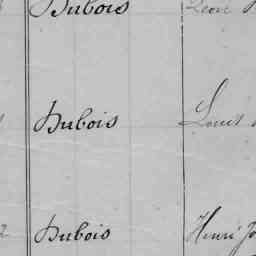 Dubois Léon
Dubois Louis
2 Dubois Henri